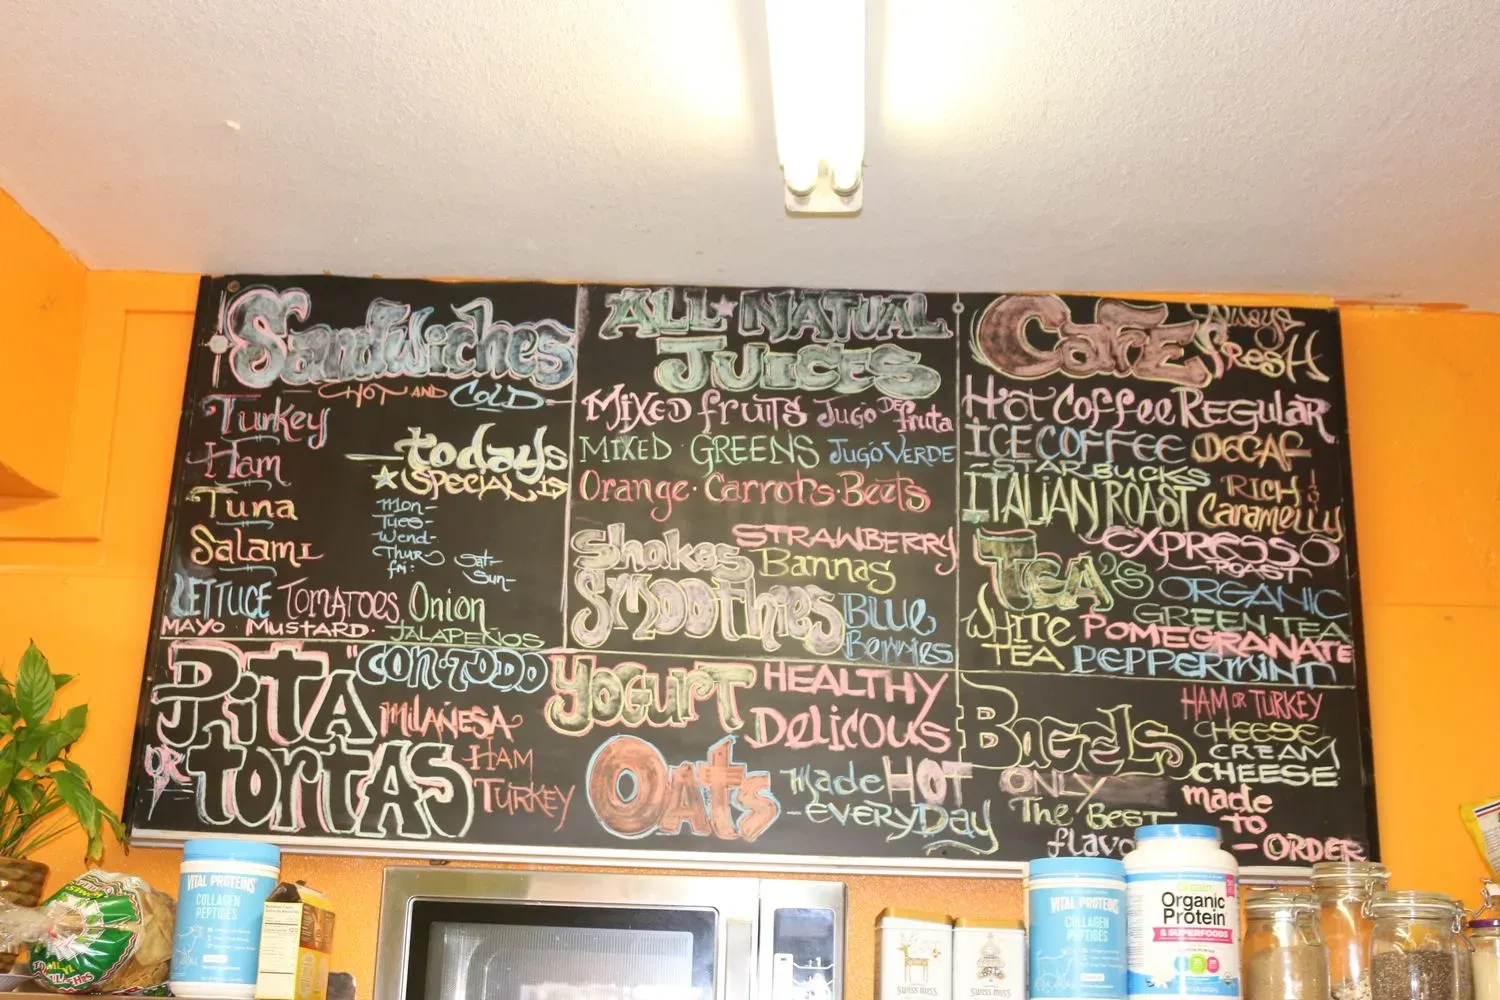 Sandwiches
HOT AND COLD
Turkey
Ham
Tuna
Salami
todays
SPECIAL IS
Mon-
Tues-
Wend-
Thur-
fri:
Sat-
Sun-
LETTUCE TOMATOES Onion
MAYO MUSTARD. JALAPEÑOS
ALL NATUAL
JUICES
MIXED fruits Jugo DE fruta
MIXED GREENS JUGO VERDE
Orange · Carrots · Beets
Shakes
SMOOTHIES
STRAWBERRY
Bannas
BLUE
Berries
CAFE Always
FRESH
Hot Coffee REGULAR
ICE COFFEE DECAF
STARBUCKS
ITALIAN ROAST
RICH &
Caramelly
EXPRESSO
ROAST
TEA'S ORGANIC
GREEN TEA
WHITE
TEA
POMEGRANATE
PEPPERMINT
PITA "CON-TODO
OR TORTAS
MILANESA
HAM
TURKEY
YOGURT HEALTHY
Delicous
Oats made HOT
-EVERYDAY
Bagels
HAM or TURKEY
CHEESE
CREAM
CHEESE
made
TO
-ORDER
ONLY
The BEST
VITAL PROTEINS
COLLAGEN
PEPTIDES
SWISS MISS
SWISS MISS
VITAL PROTEINS
COLLAGEN
PEPTIDES
Orgain
Organic
Protein
& SUPERFOODS